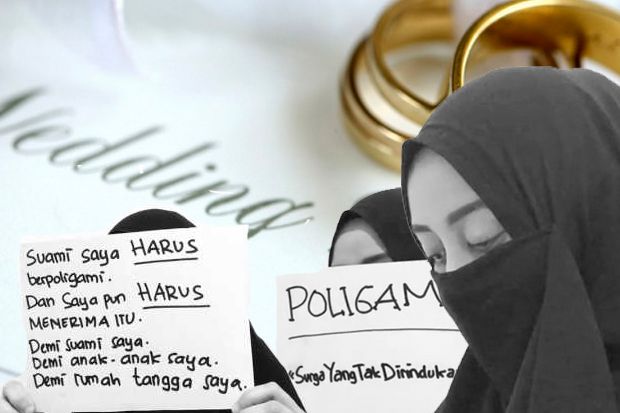 Wedding
Suami saya HARUS
berpoligami.
Dan Saya pun HARUS
MENERIMA ITU.
Demi suami saya.
Demi anak-anak saya.
Demi rumah tangga saya.
POLIGAM
SurgaYangTakDirinduka